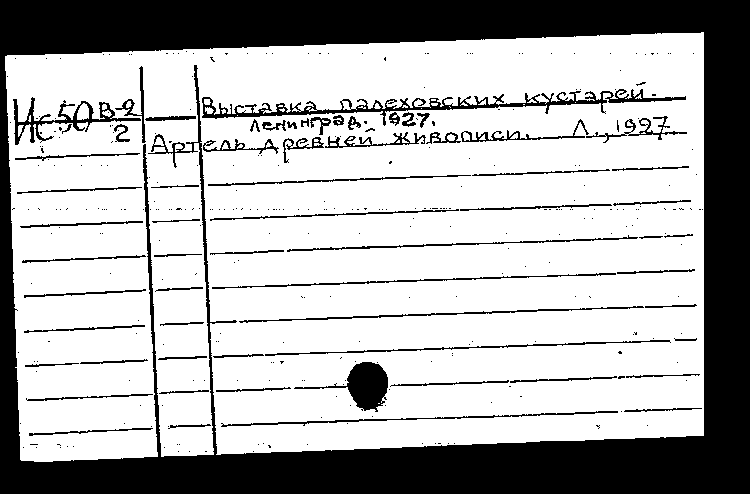 Ис50 В-2
2
Выставка палеховских кустарей.
Ленинград. 1927.
Артель древней живописи. Л., 1927.